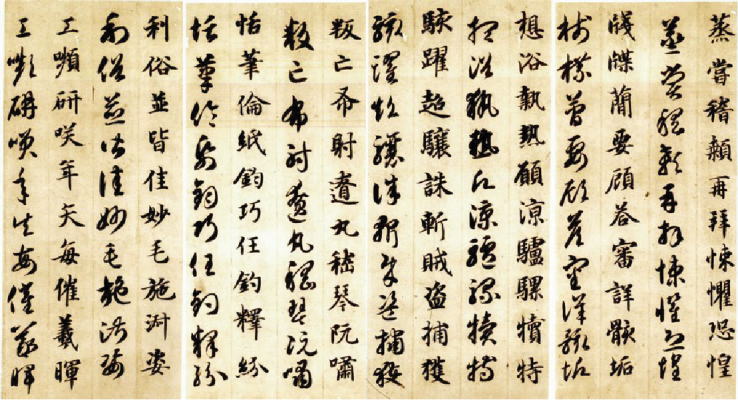 蒸嘗稽顙再拜悚懼恐惶
蒸嘗稽顙再拜悚懼恐惶
牋牒簡要顧荅審詳骸垢
牋牒簡要顧荅審詳骸垢
想浴執熱願涼驢騾犢特
想浴執熱願涼驢騾犢特
駭躍超驤誅斬賊盜捕獲
駭躍超驤誅斬賊盜捕獲
叛亡布射遼丸嵇琴阮嘯
叛亡布射遼丸嵇琴阮嘯
恬筆倫紙鈞巧任釣釋紛
恬筆倫紙鈞巧任釣釋紛
利俗並皆佳妙毛施淑姿
利俗並皆佳妙毛施淑姿
工嚬妍咲年矢每催羲暉
工嚬妍咲年矢每催羲暉